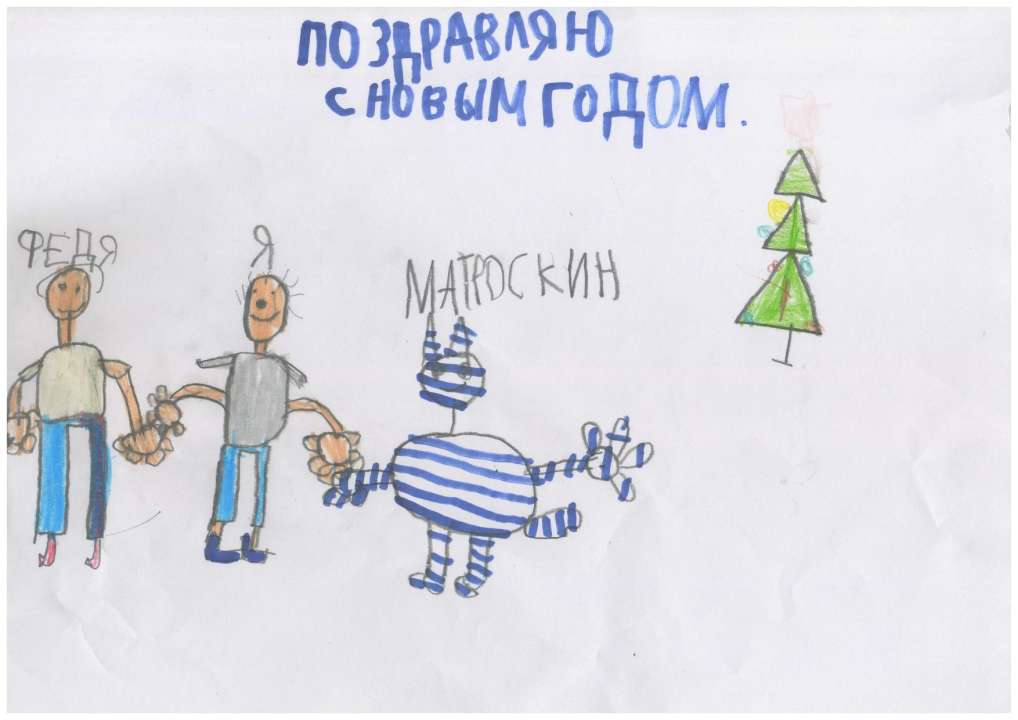 ПОЗДРАВЛЯЮ
С НОВЫМ ГОДОМ.
ФЕДЯ
Я
МАТРОСКИН